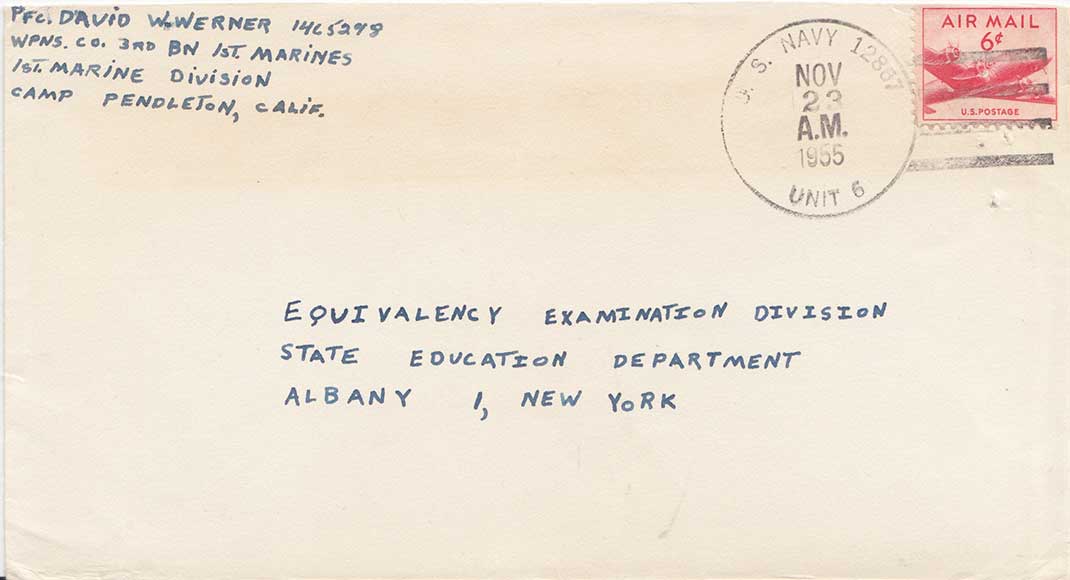 PFC. DAVID W. WERNER 1465298
WPNS. CO. 3RD BN 1ST. MARINES
1ST. MARINE DIVISION
CAMP PENDLETON, CALIF.
U. S. NAVY 12867
NOV
23
A.M.
1955
UNIT 6
AIR MAIL
6¢
U.S. POSTAGE
EQUIVALENCY EXAMINATION DIVISION
STATE EDUCATION DEPARTMENT
ALBANY 1, NEW YORK